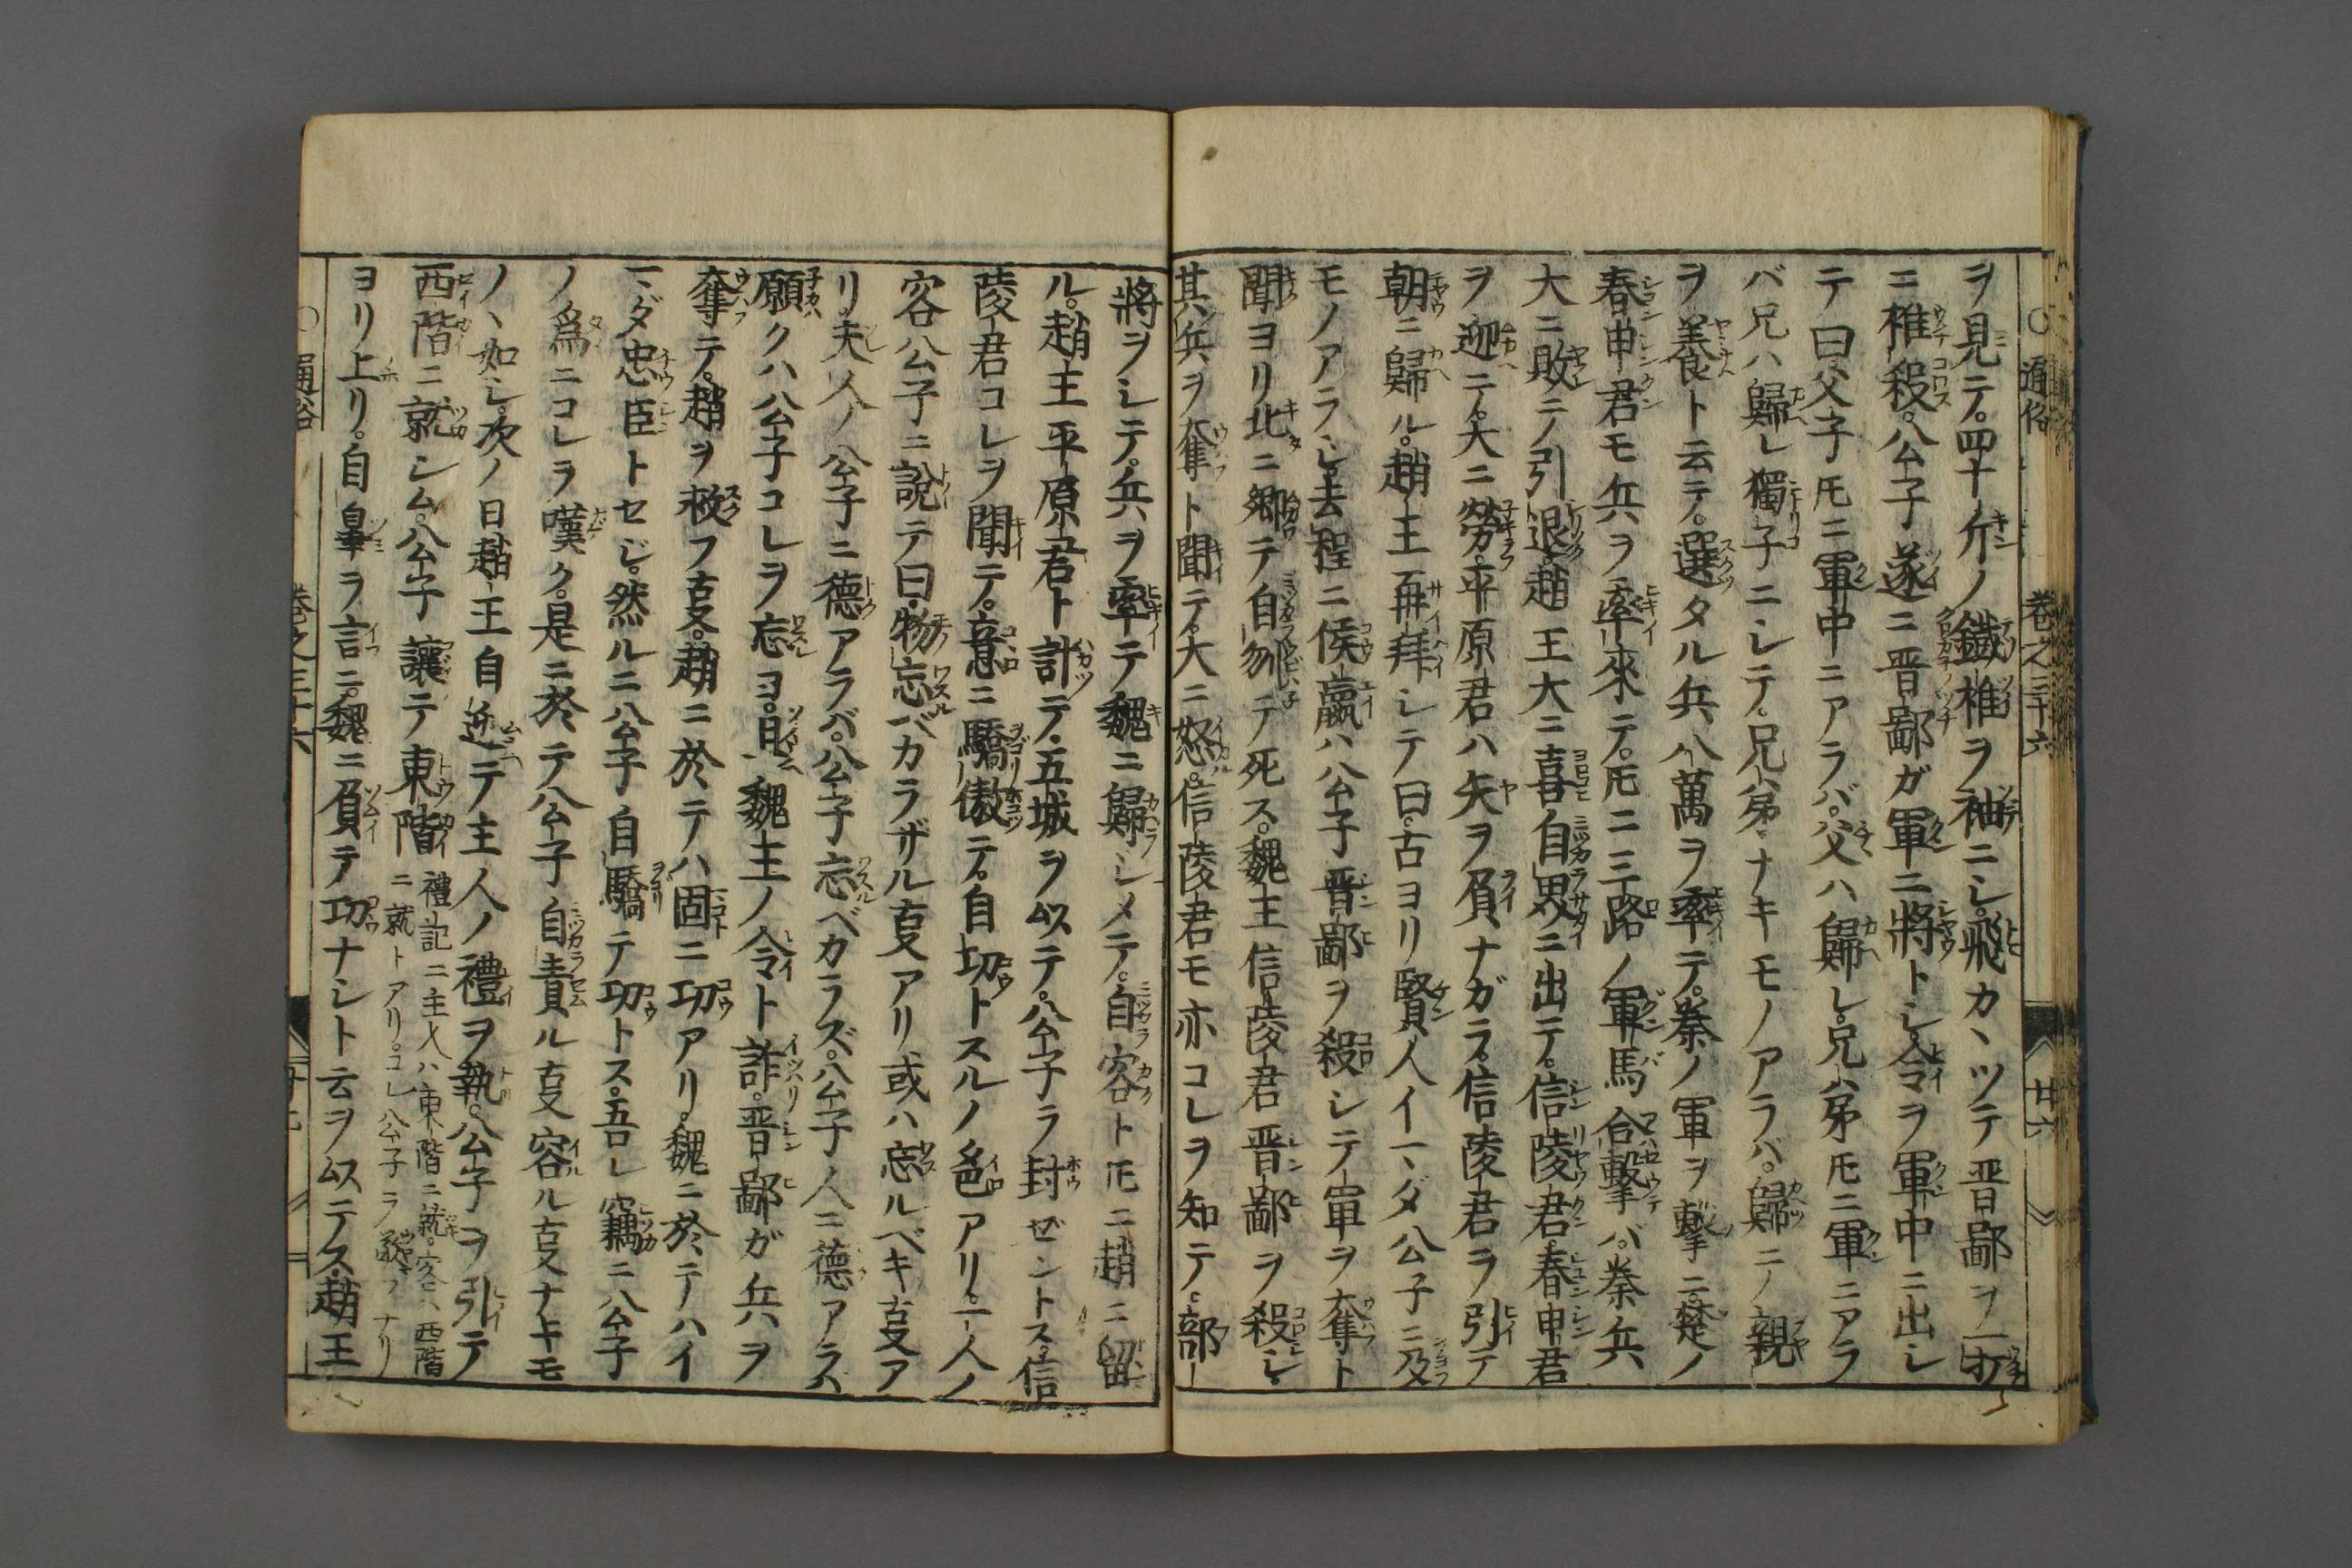 通俗 巻之三十六 廿六
ヲ見テ。四十斤ノ鐵椎ヲ袖ニシ。飛カヽツテ晋鄙ヲ一打
ニ椎殺。公子遂ニ晋鄙ガ軍ニ將トシ。令ヲ軍中ニ出シ
テ曰。父子𪜈ニ軍中ニアラバ。父ハ歸レ。兄弟𪜈ニ軍ニアラ
バ兄ハ歸レ獨子ニシテ。兄弟ナキモノアラバ。歸ニノ親
ヲ養ト云テ。選タル兵八萬ヲ率テ。秦ノ軍ヲ擊ニ。楚ノ
春申君モ兵ヲ率來テ。𪜈ニ三路ノ軍馬合擊バ。秦兵
大ニ敗テノ引退。趙王大ニ喜自界ニ出テ。信陵君。春申君
ヲ迎テ。大ニ勞。平原君ハ矢ヲ負ナガラ。信陵君ヲ引テ
朝ニ歸ル。趙王再拜シテ曰。古ヨリ賢人イマダ公子ニ及
モノアラシ。去程ニ侯嬴ハ公子晋鄙ヲ殺シテ軍ヲ奪ト
聞ヨリ北ニ鄕テ自刎テ死ス。魏王信陵君晋鄙ヲ殺シ。
其兵ヲ奪ト聞テ。大ニ怒。信陵君モ亦コレヲ知テ。部
將ヲシテ。兵ヲ率テ魏ニ歸シメテ。自客ト𪜈ニ趙ニ留
ル。趙王平原君ト計テ。五城ヲ以テ。公子ヲ封ゼントス。信
陵君コレヲ聞テ。意ニ驕傲テ。自功トスルノ色アリ。一人ノ
客公子ニ說テ曰。物忘ベカラザル叓アリ或ハ忘ルベキ叓ア
リ夫人ノ公子ニ德アラバ。公子忘ベカラズ。公子人ニ德アラバ
願クハ公子コレヲ忘ヨ。且魏王ノ令ト詐。晋鄙ガ兵ヲ
奪テ。趙ヲ救フ叓。趙ニ於テハ固ニ功アリ。魏ニ於テハイ
マダ忠臣トセジ。然ルニ公子自驕テ功トス。吾レ竊ニ公子
ノ爲ニコレヲ嘆ク。是ニ於テ公子自責ル叓容ル叓ナキモ
ノヽ如シ。次ノ日趙王自迎テ主人ノ禮ヲ執。公子ヲ引テ
西階ニ就シム。公子讓テ東階 禮記ニ主人ハ東階ニ就。客ハ西階
ニ就トアリ。コレ公子ヲ敬フナリ
ヨリ上リ。自辠ヲ言ニ。魏ニ負テ功ナシト云ヲ以テス。趙王
通俗 巻之三十六